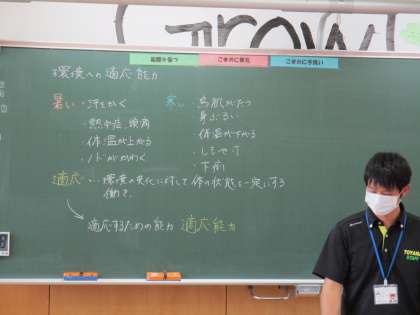 Grow
短期を保つ
こまめに換気
こまめに手洗い
環境への適応能力
暑い・汗をかく
・熱中症、頭痛
・体温が上がる
・ノドがかわく
寒い・鳥肌がたつ
・身ぶるい
・体温が下がる
・しもやけ
・下痢
適応…環境の変化に対して体の状態を一定にする
働き。
適応するための能力 適応能力
TOYAMA
STAFF